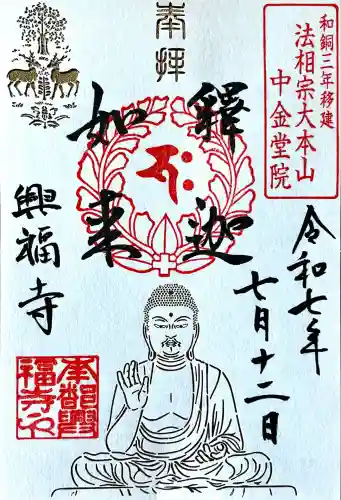 和銅三年移建
法相宗大本山
中金堂院
奉拝
令和七年
七月十二日
釋迦
如来
興福寺